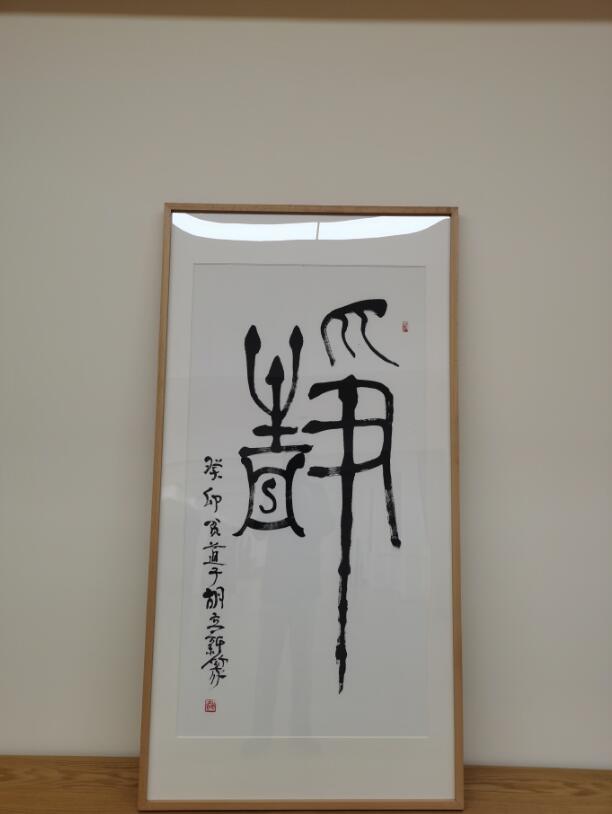 靜
癸卯
道子胡立新篆